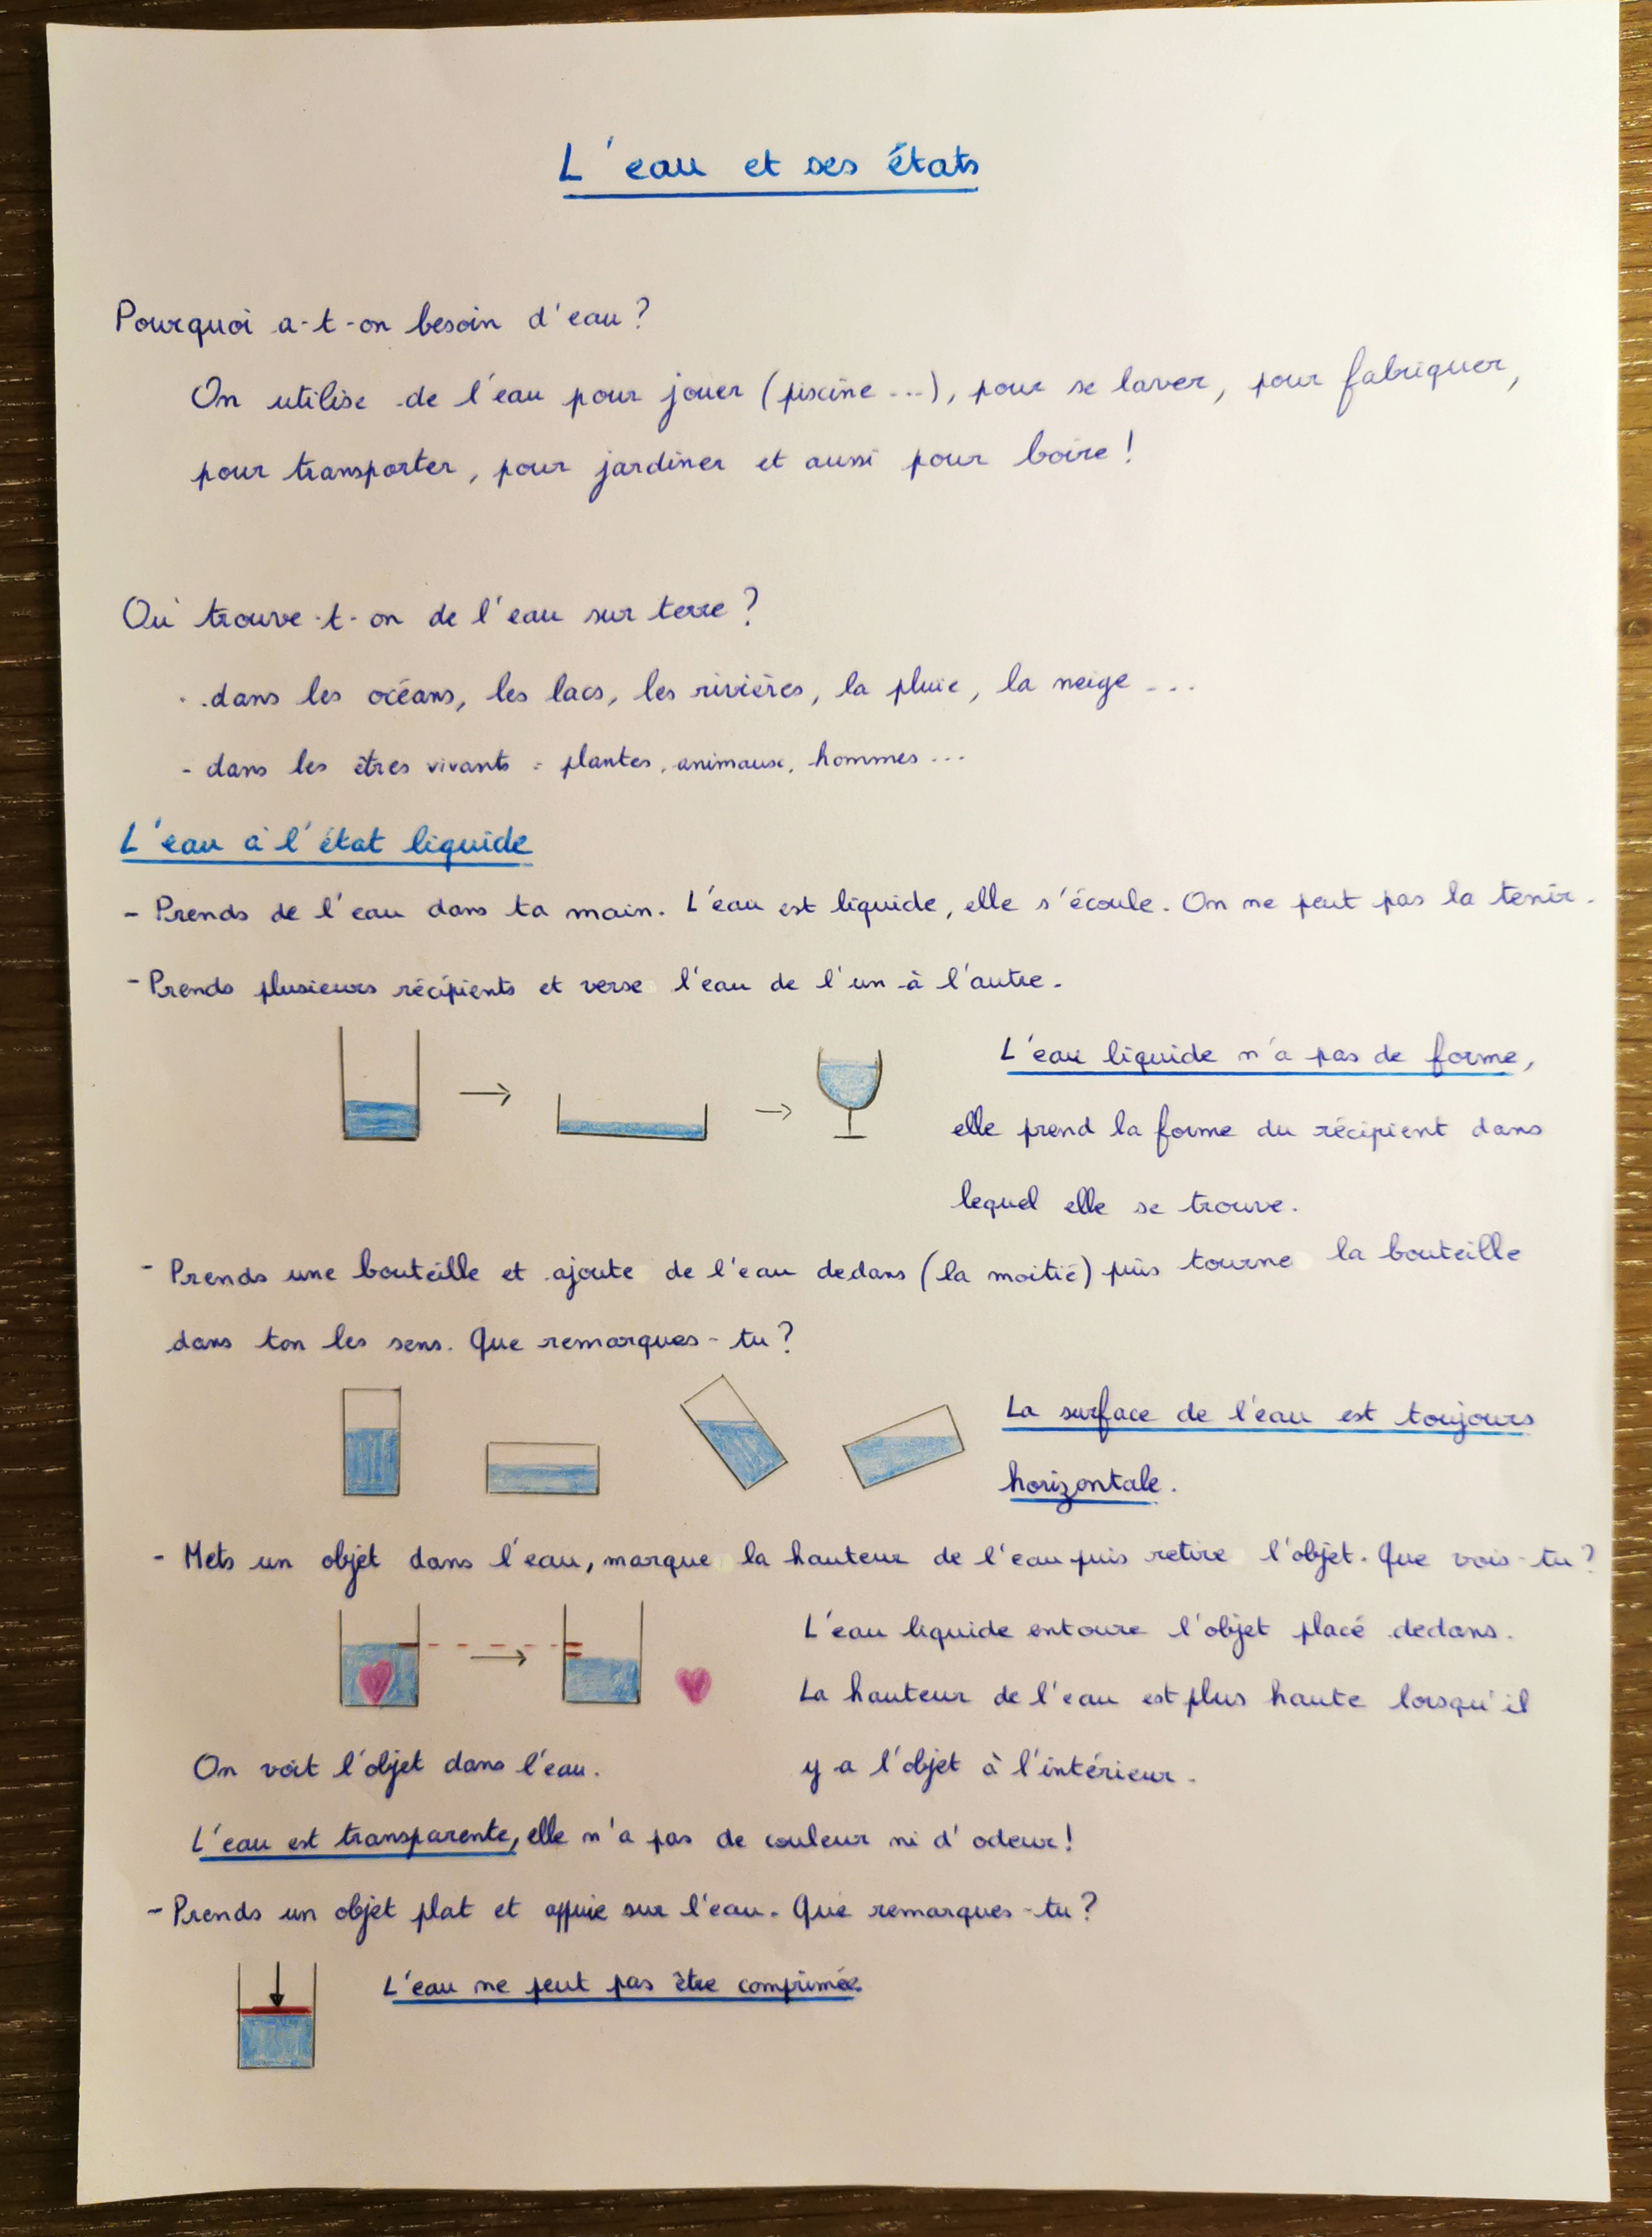 L'eau et ses états
Pourquoi a-t-on besoin d'eau ?
On utilise de l'eau pour jouer (piscine ...), pour se laver, pour fabriquer,
pour transporter, pour jardiner et aussi pour boire !
Où trouve-t-on de l'eau sur terre ?
- dans les océans, les lacs, les rivières, la pluie, la neige ...
- dans les êtres vivants : plantes, animaux, hommes ...
L'eau à l'état liquide
- Prends de l'eau dans ta main. L'eau est liquide, elle s'écoule. On ne peut pas la tenir.
- Prends plusieurs récipients et verse l'eau de l'un à l'autre.
L'eau liquide n'a pas de forme,
elle prend la forme du récipient dans
lequel elle se trouve.
- Prends une bouteille et ajoute de l'eau dedans (la moitié) puis tourne la bouteille
dans ton les sens. Que remarques-tu ?
La surface de l'eau est toujours
horizontale.
- Mets un objet dans l'eau, marque la hauteur de l'eau puis retire l'objet. Que vois-tu ?
L'eau liquide entoure l'objet placé dedans.
La hauteur de l'eau est plus haute lorsqu'il
y a l'objet à l'intérieur.
On voit l'objet dans l'eau.
L'eau est transparente, elle n'a pas de couleur ni d'odeur !
- Prends un objet plat et appuie sur l'eau. Que remarques-tu ?
L'eau ne peut pas être comprimée.